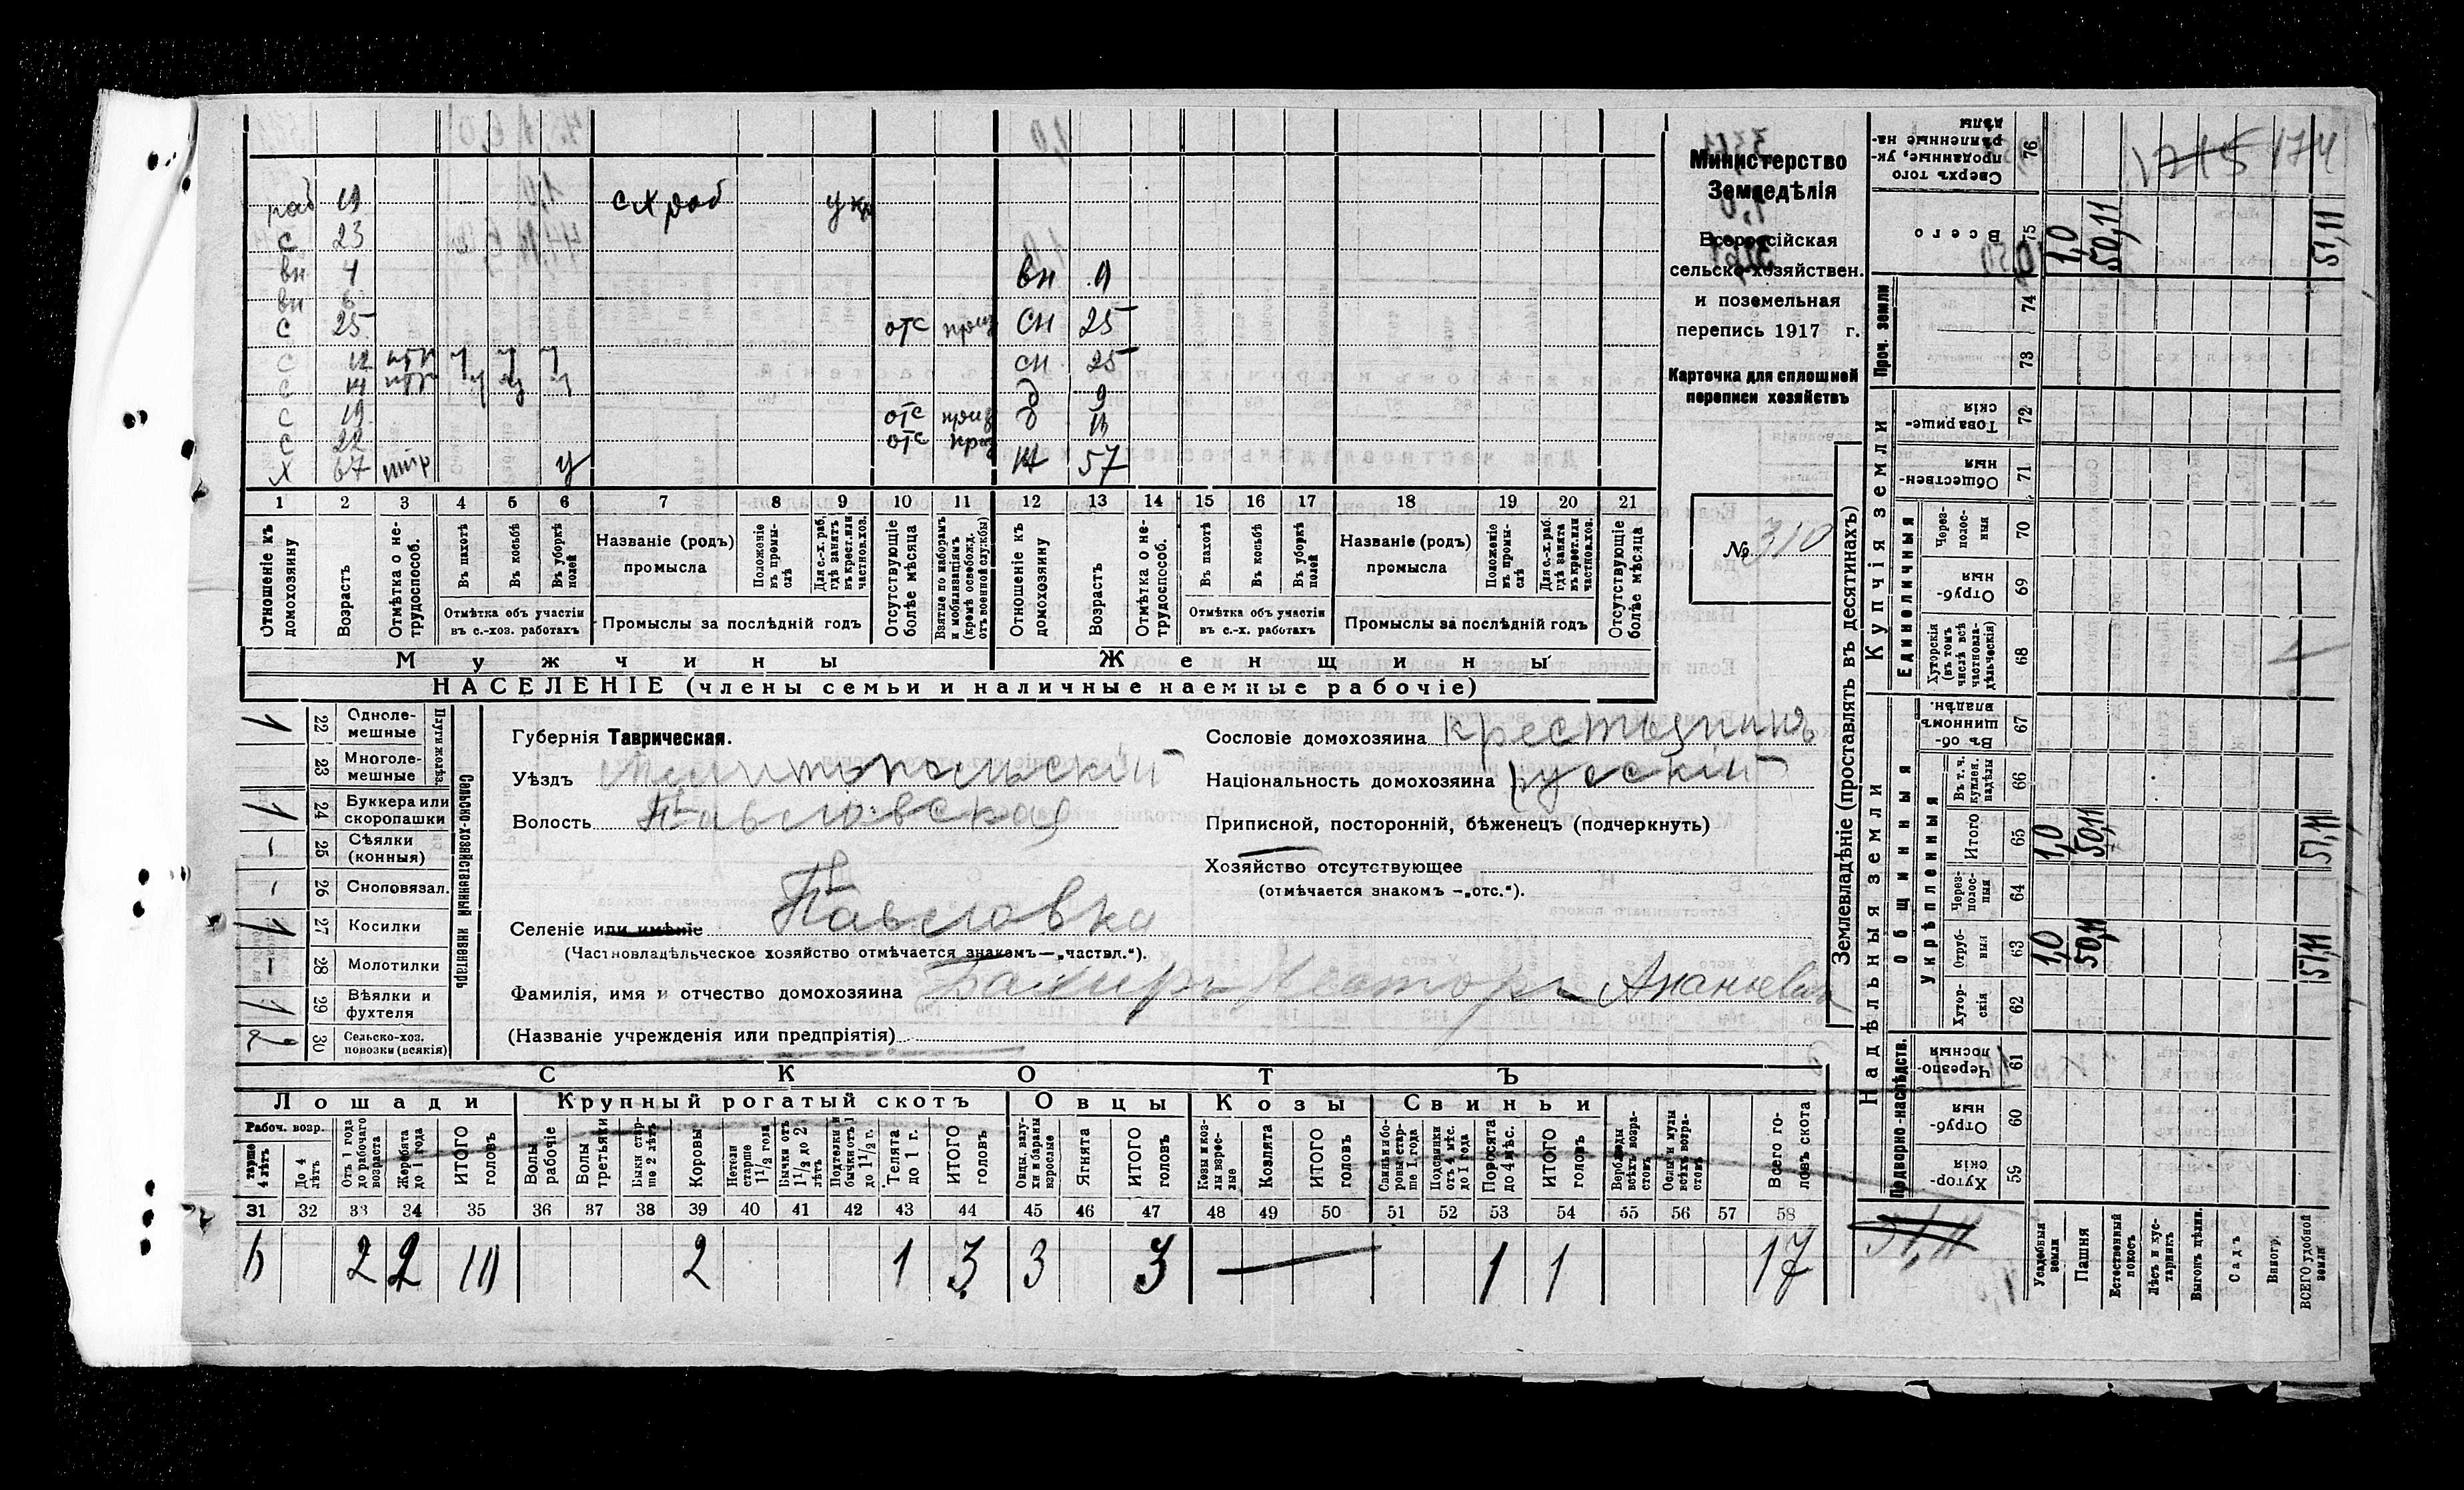 раб 19 с х раб укр
с 23
вн 4 вн 9
вн 6
с 25 отс приз сн 25
с 12 сн 25
с 14 д 9
с 19 отс приз д
с 22 отс приз
х 67 у 57
1 2 3 4 5 6 7 8 9 10 11 12 13 14 15 16 17 18 19 20 21
Отношеніе къ домохозяину
Возрастъ
Отмѣтка о нетрудоспособ.
Въ пахотѣ
Въ косьбѣ
Въ уборкѣ полей
Отмѣтка объ участіи въ с.-хоз. работахъ
Названіе (родъ) промысла
Положеніе въ промыслѣ
Для с.-х. раб. гдѣ занятъ въ крест. или частнов. хоз.
Промыслы за послѣдній годъ
Отсутствующіе болѣе мѣсяца
Взятые по наборамъ и мобилизаціямъ (кромѣ освобожд. отъ военной службы)
Отношеніе къ домохозяину
Возрастъ
Отмѣтка о нетрудоспособ.
Въ пахотѣ
Въ косьбѣ
Въ уборкѣ полей
Отмѣтка объ участіи въ с.-х. работахъ
Названіе (родъ) промысла
Положеніе въ промыслѣ
Для с.-х. раб. гдѣ занята въ крест. или частнов. хоз.
Промыслы за послѣдній годъ
Отсутствующіе болѣе мѣсяца
Мужчины Женщины
НАСЕЛЕНІЕ (члены семьи и наличные наемные рабочіе)
Министерство
Земледѣлія
Всероссійская
сельско-хозяйствен.
и поземельная
перепись 1917 г.
Карточка для сплошной
переписи хозяйствъ
№ 310
Сельско-хозяйственный инвентарь
22 Однолемешные 1
23 Многолемешные
24 Буккера или скоропашки 1
25 Сѣялки (конныя) –
26 Сноповязал. –
27 Косилки 1
28 Молотилки –
29 Вѣялки и фухтеля 1
30 Сельско-хоз. повозки (всякія) 2
Губернія Таврическая.
Уѣздъ Мелитопольскій
Волость Павловская
Селеніе или имѣніе Павловка
(Частновладѣльческое хозяйство отмѣчается знакомъ—„частвл.“).
Фамилія, имя и отчество домохозяина Нестор Ананьевич
(Названіе учрежденія или предпріятія)
Сословіе домохозяина крестьянинъ
Національность домохозяина русскій
Приписной, посторонній, бѣженецъ (подчеркнуть)
Хозяйство отсутствующее
(отмѣчается знакомъ —„отс.“).
СКОТЪ
Лошади Крупный рогатый скотъ Овцы Козы Свиньи
Рабоч. возр.
старше 4 лѣтъ
До 4 лѣтъ
Отъ 1 года до рабочаго возраста
Жеребята до 1 года
ИТОГО головъ
Волы рабочіе
Волы третьяки
Быки старше 2 лѣтъ
Коровы
Нетели старше 1½ года
Бычки отъ 1½ до 2 лѣтъ
Подтелки и бычки отъ 1 до 1½ г.
Телята до 1 г.
ИТОГО головъ
Овцы, валухи и бараны взрослые
Ягнята
ИТОГО головъ
Козы и козлы взрослые
Козлята
ИТОГО головъ
Свиньи и боровы старше 1 года
Подсвинки отъ 4 мѣс. до 1 года
Поросята до 4 мѣс.
ИТОГО головъ
Верблюды всѣхъ возрастовъ
Ослы и мулы всѣхъ возрастовъ
Всего головъ скота
31 32 33 34 35 36 37 38 39 40 41 42 43 44 45 46 47 48 49 50 51 52 53 54 55 56 57 58
6 2 2 10 2 1 3 3 3 — 1 1 17
Землевладѣніе (проставлять въ десятинахъ)
Надѣльныя земли Купчія земли Проч. земли
Подворно-наслѣдств. Общинныя Единоличныя
Укрѣпленныя
59 Хуторскія
60 Отрубныя
61 Черезполосныя
62 Хуторскія
63 Отрубныя 1,0 50,11 51,11
64 Черезполосныя
65 Итого 1,0 50,11 51,11
66 Въ т. ч. куплен. надѣлы
67 Въ общинномъ владѣн.
68 Хуторскія (въ томъ числѣ всѣ частновладѣльческія)
69 Отрубныя
70 Черезполосныя
71 Общественныя
72 Товарищескія
73
74
75 Всего 1,0 50,11 51,11
76 Сверхъ того проданные, укрѣпленные надѣлы
1715 174
51,11
Усадебныя земли
Пашня
Естественный покосъ
Лѣсъ и кустарникъ
Выгонъ цѣлин.
Садъ
Виногр.
ВСЕГО удобной земли